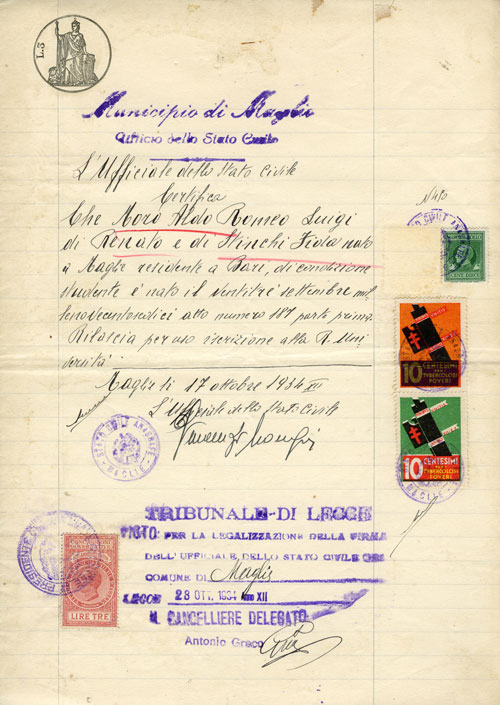 L. 3
Municipio di Maglie
Ufficio dello Stato Civile
L'Ufficiale dello Stato Civile
Certifica
N 480
Che Moro Aldo Romeo Luigi
di Renato e di Stinchi Fida nato
a Maglie residente a Bari, di condizione
studente è nato il ventitrè settembre mil
lenovecentosedici atto numero 187 parte prima
Rilascia per uso iscrizione alla R. Uni
versità
Maglie li 17 ottobre 1934 XII
L'Ufficiale dello Stato Civile
STATO CIVILE
MAGLIE
10 CENTESIMI
TUBERCOLOSI
POVERI
10 CENTESIMI
TUBERCOLOSI
POVERI
TRIBUNALE DI LECCE
VISTO: PER LA LEGALIZZAZIONE DELLA FIRMA
DELL'UFFICIALE DELLO STATO CIVILE DEL
COMUNE DI Maglie
LECCE 23 OTT. 1934 Anno XII
IL CANCELLIERE DELEGATO
Antonio Greco
PRESIDENTE
LIRE TRE